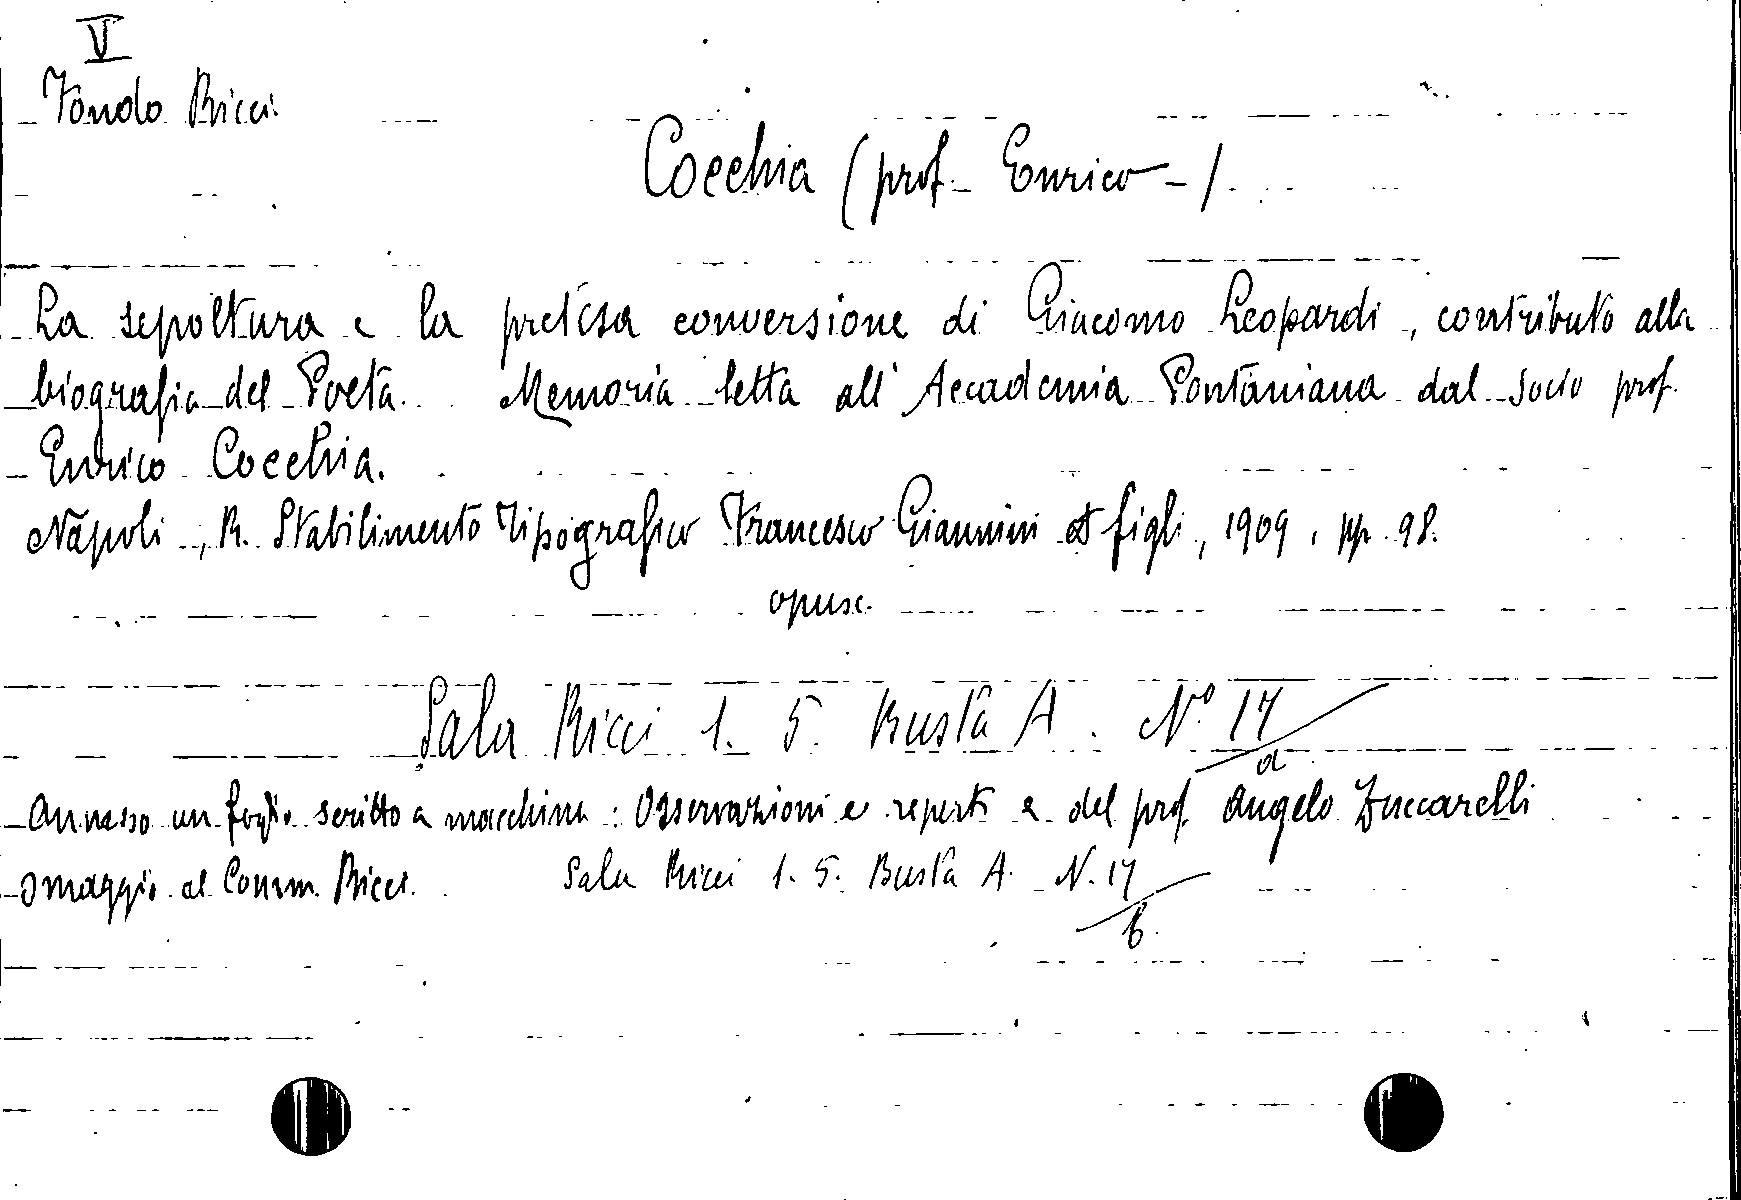 V
Fondo Ricci.
Cocchia (prof. Enrico - )
La sepoltura e la pretesa conversione di Giacomo Leopardi, contributo alla
biografia del Poeta. Memoria letta all'Accademia Pontaniana dal socio prof.
Enrico Cocchia.
Napoli, R. Stabilimento Tipografico Francesco Giannini et figli, 1909, pp. 98.
opusc.
Sala Ricci 1. 5. Busta A. N.º 17/a
Annesso un foglio scritto a macchina: Osservazioni e reperti del prof. Angelo Zuccarelli
omaggio al Comm. Ricci. Sala Ricci 1. 5. Busta A. N. 17/b.